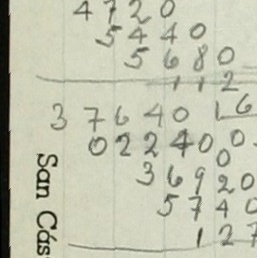 4720
5440
5680
112
37640 16
022400
36920
5740
127
San Cás